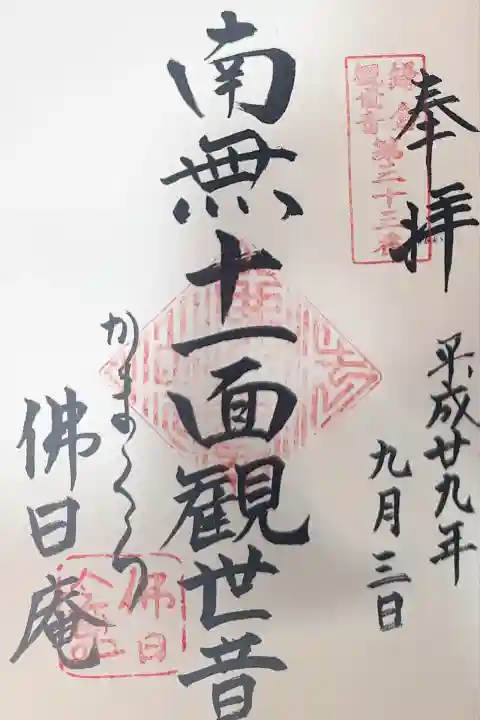 奉拝
鎌倉
観世音第三十三番
平成廿九年
九月三日
南無十一面観世音
かまくら
佛日庵
佛日